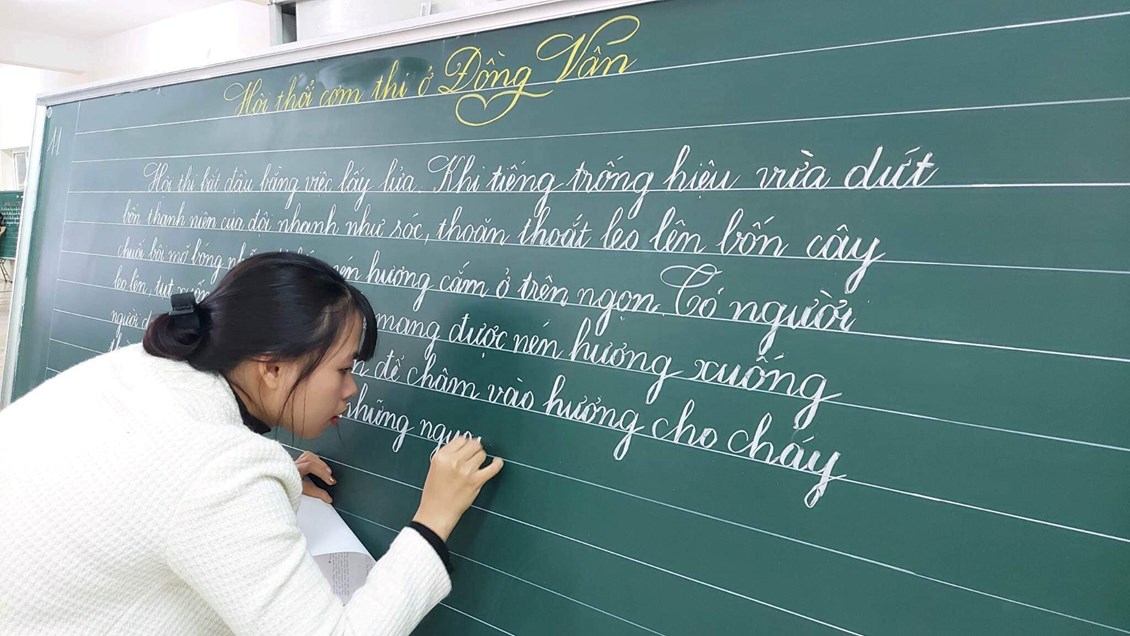 Hội thổi cơm thi ở Đồng Vân
11
Hội thi bắt đầu bằng việc lấy lửa. Khi tiếng trống hiệu vừa dứt
bốn thanh niên của đội nhanh như sóc, thoăn thoắt leo lên bốn cây
chuối bôi mỡ bóng nén hương cắm ở trên ngọn. Có người
leo lên, tụt
người mang được nén hương xuống
để châm vào hương cho cháy
những